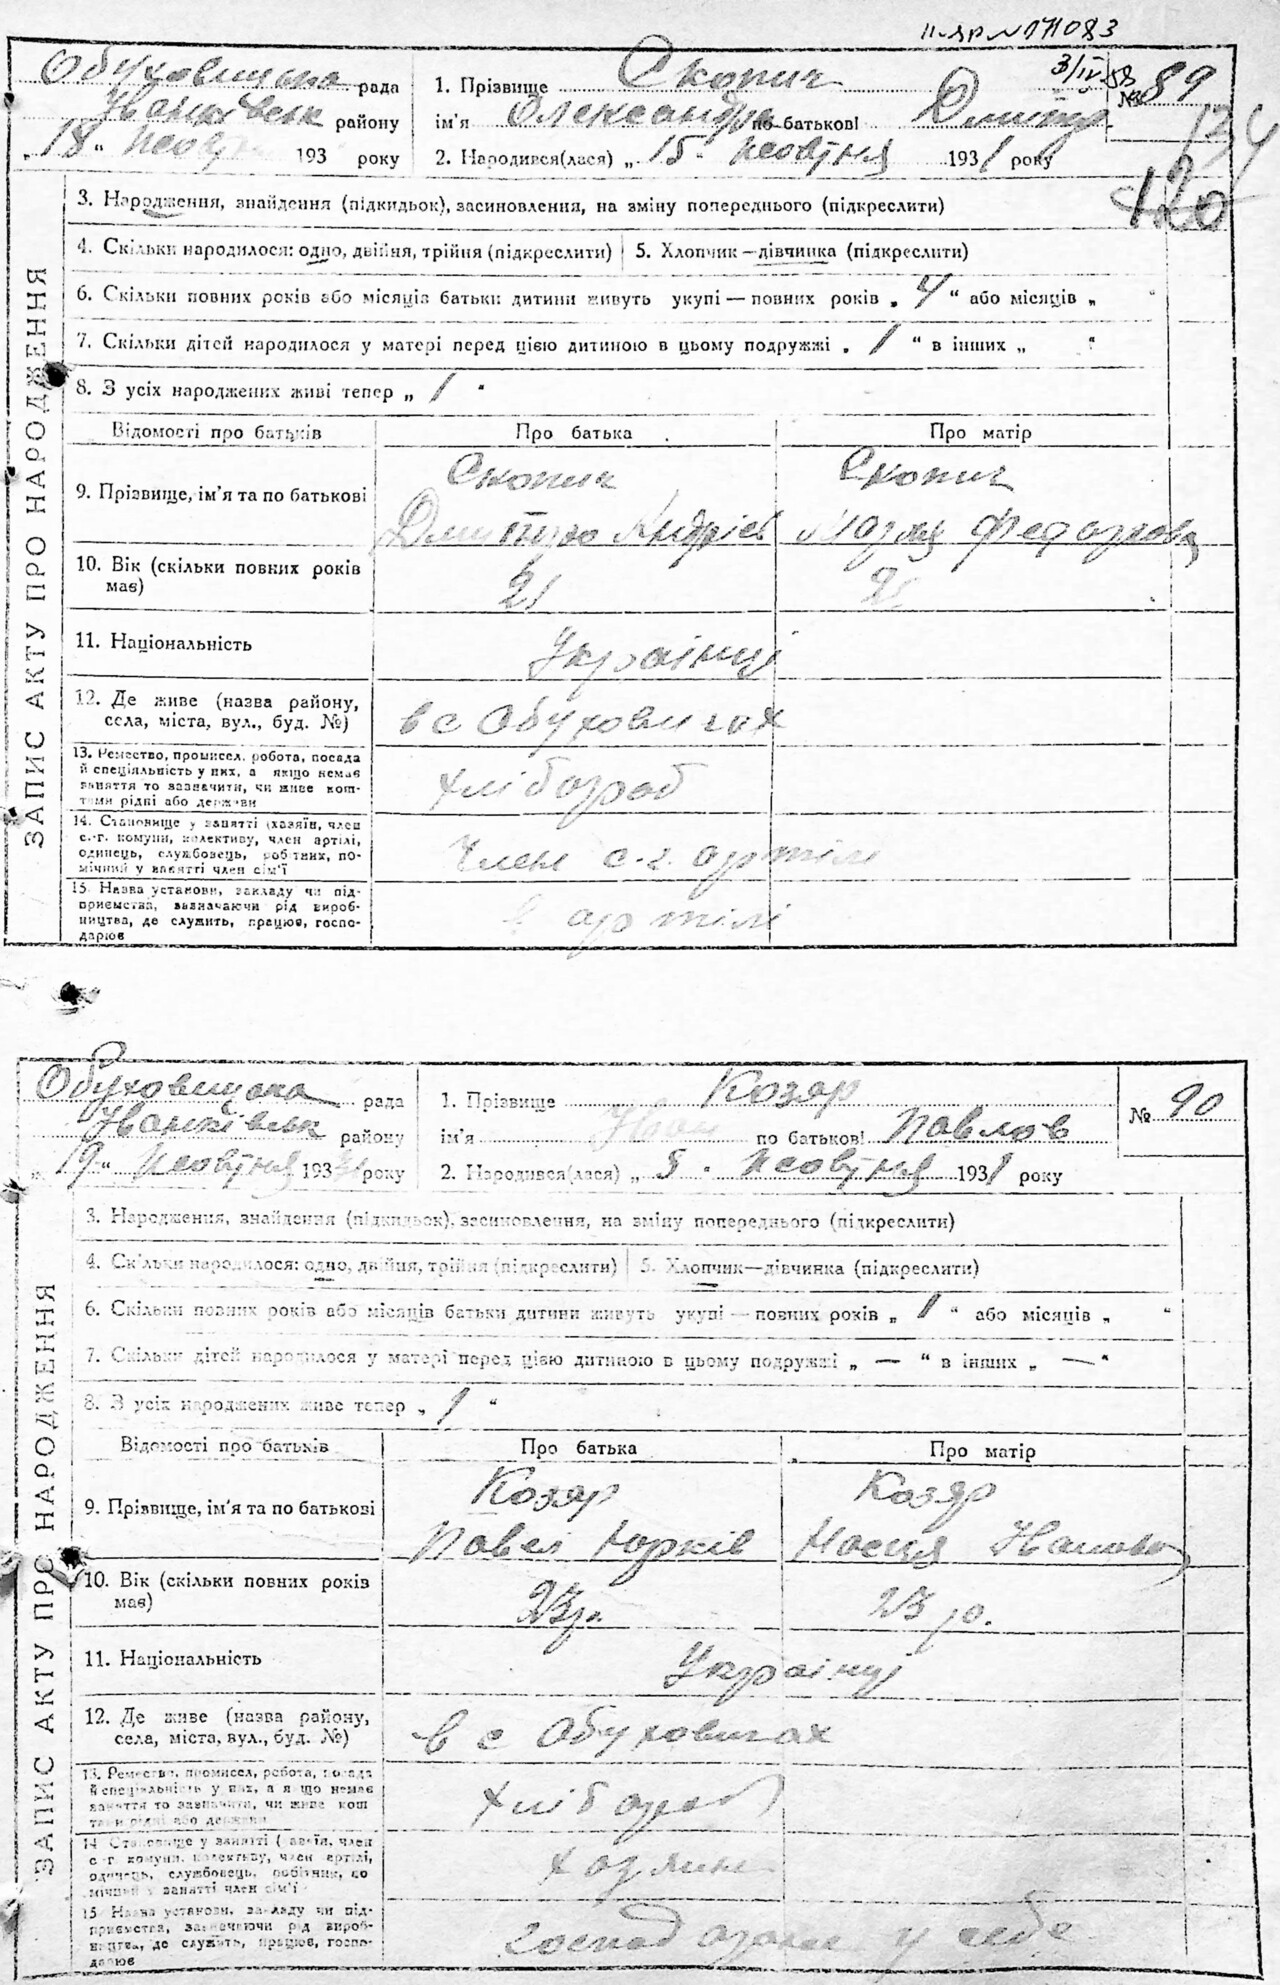 II-ЯР № 171083
3/IV 58
Обуховицька рада
1. Прізвище Скопич
№ 89
Іванківськ району
ім'я Олександра по батькові Дмитр
124
„18“ жовтня 193 року
2. Народився(лася) „15“ жовтня 1931 року
120
ЗАПИС АКТУ ПРО НАРОДЖЕННЯ
3. Народження, знайдення (підкидьок), засиновлення, на зміну попереднього (підкреслити)
4. Скільки народилося: одно, двійня, трійня (підкреслити) 5. Хлопчик—дівчинка (підкреслити)
6. Скільки повних років або місяців батьки дитини живуть укупі — повних років „4“ або місяців „ “
7. Скільки дітей народилося у матері перед цією дитиною в цьому подружжі „1“ в інших „ “
8. З усіх народжених живі тепер „1“
Відомості про батьків Про батька Про матір
9. Прізвище, ім'я та по батькові
Скопич Скопич
Дмитро Андрієв Федорова
10. Вік (скільки повних років має)
21
11. Національність Українці
12. Де живе (назва району, села, міста, вул., буд. №)
в с Обуховичах
13. Ремество, промисел, робота, посада
й спеціяльність у них, а якщо немає
заняття то зазначити, чи живе кош-
тами рідні або держави
хлібороб
14. Становище у занятті (хазяїн, член
с.-г. комуни, колективу, член артілі,
одинець, службовець, робітник, по-
мічний у занятті член сім'ї
член с.-г. артілі
15. Назва установи, закладу чи під-
приємства, зазначаючи рід вироб-
ництва, де служить, працює, госпо-
дарює
артілі
Обуховицька рада
1. Прізвище Козяр
№ 90
Іванківськ району
ім'я Іван по батькові Павлов
„19“ жовтня 1931 року
2. Народився(лася) „5“ жовтня 1931 року
ЗАПИС АКТУ ПРО НАРОДЖЕННЯ
3. Народження, знайдення (підкидьок), засиновлення, на зміну попереднього (підкреслити)
4. Скільки народилося: одно, двійня, трійня (підкреслити) 5. Хлопчик—дівчинка (підкреслити)
6. Скільки повних років або місяців батьки дитини живуть укупі — повних років „1“ або місяців „ “
7. Скільки дітей народилося у матері перед цією дитиною в цьому подружжі „—“ в інших „—“
8. З усіх народжених живе тепер „1“
Відомості про батьків Про батька Про матір
9. Прізвище, ім'я та по батькові
Козяр Козяр
Павел Юрків Настя Іванова
10. Вік (скільки повних років має)
23 р. 23 р.
11. Національність Українці
12. Де живе (назва району, села, міста, вул., буд. №)
в с Обуховичах
13. Ремество, промисел, робота, посада
й спеціяльність у них, а якщо немає
заняття то зазначити, чи живе кош
тами рідні або держави
хлібороб
14 Становище у занятті (хазяїн, член
с-г. комуни, колективу, член артілі,
одинець, службовець, робітник, по
мічний у занятті член сім'ї
хазяин
15 Назва установи, закладу чи під-
приємства, зазначаючи рід вироб-
ництва, де служить, працює, госпо-
дарює
господарює у себе